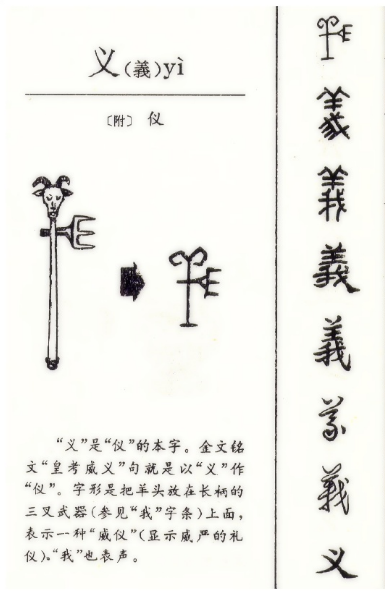 义(義)yì
〔附〕 仪
“义”是“仪”的本字。金文铭
文“皇考威义”句就是以“义”作
“仪”。字形是把羊头放在长柄的
三叉武器(参见“我”字条)上面，
表示一种“威仪”(显示威严的礼
仪)。“我”也表声。
義
義
義
義
义